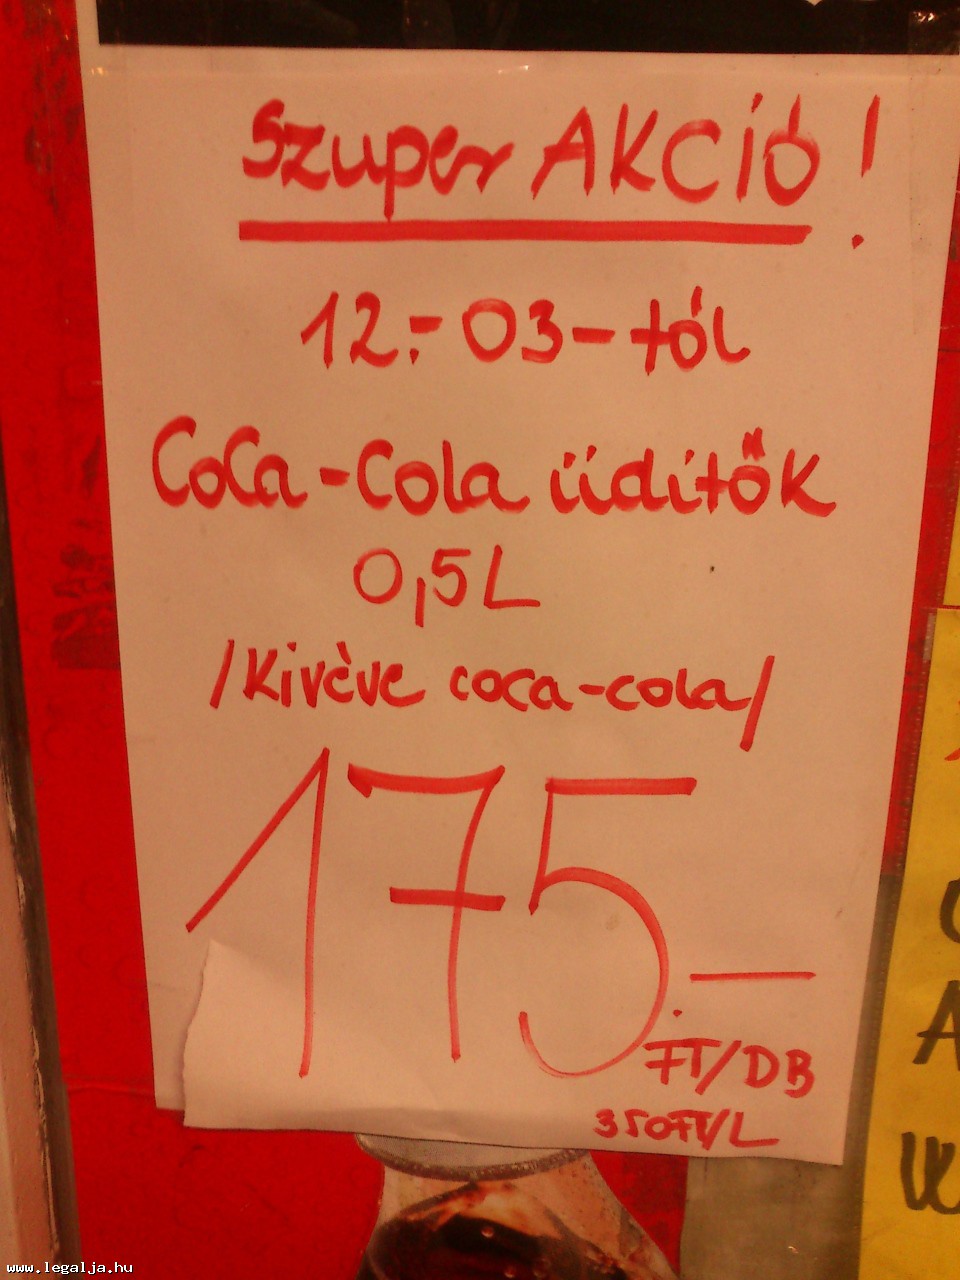 Szuper AKCIÓ!
12.-03-tól
CoCa-Cola üdítők
0,5L
/Kivéve coca-cola/
175.-
FT/DB
350FT/L
www.legalja.hu